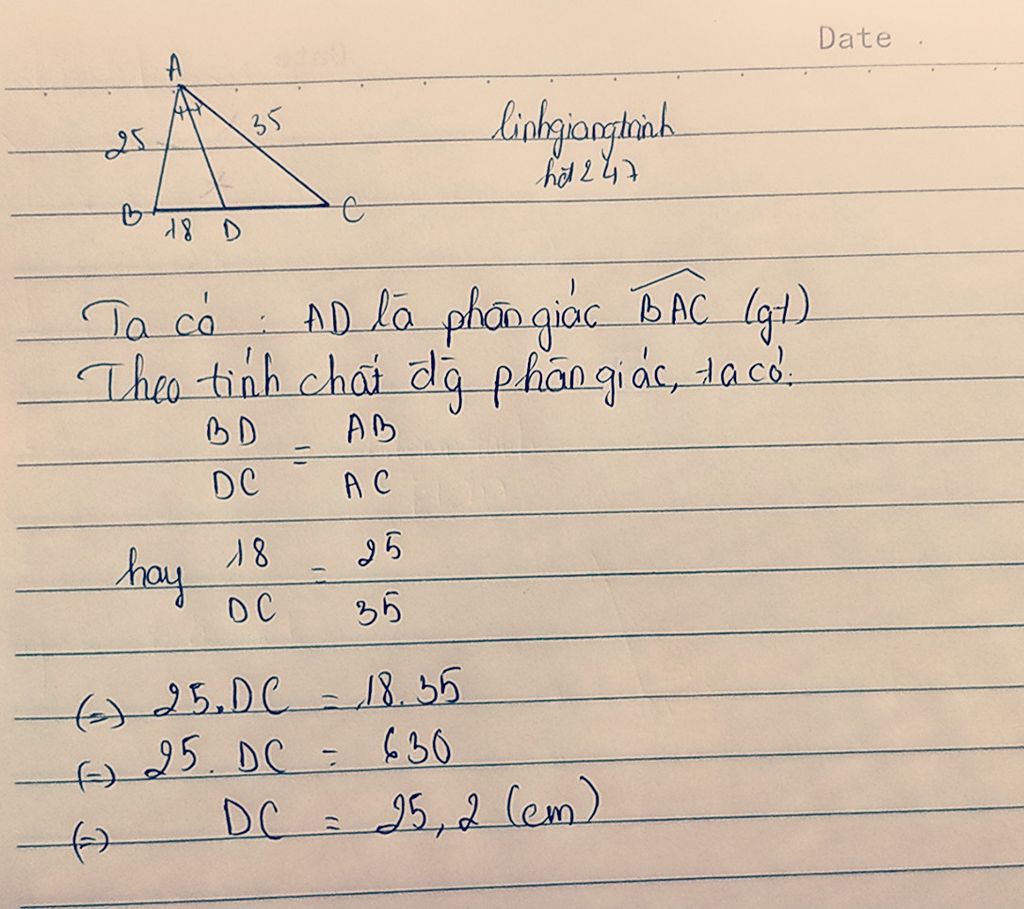 Date
A
25
35
B
18
D
C
linhgiangtrinh
hđ247
Ta có : AD là phân giác BAC (gt)
Theo tính chất đg phân giác, ta có:
BD/DC = AB/AC
hay 18/DC = 25/35
(=) 25.DC = 18.35
(=) 25. DC = 630
(=) DC = 25,2 (cm)